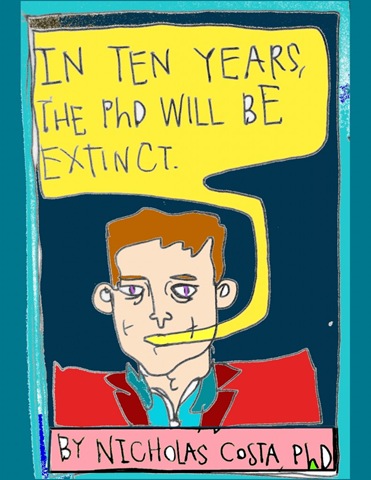 IN TEN YEARS,
THE PhD WILL BE
EXTINCT.
BY NICHOLAS COSTA, PhD